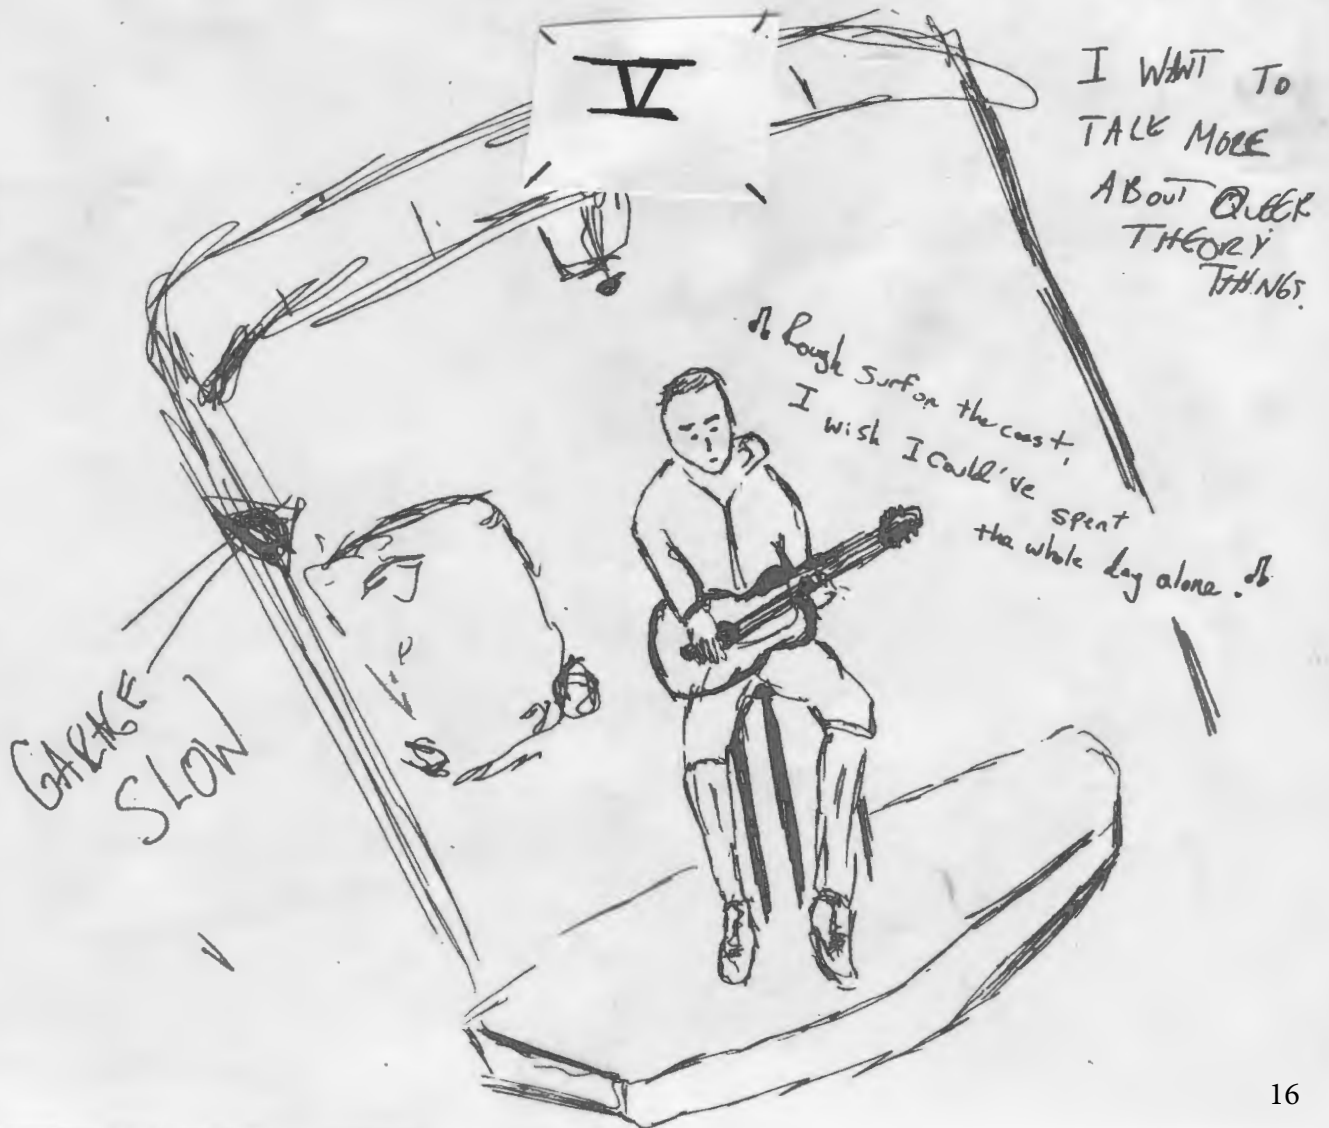 V
I WANT TO
TALK MORE
ABOUT QUEER
THEORY
THINGS.
♫ Rough surf on the coast,
I wish I could've spent
the whole day alone. ♫
GARAGE
SLOW
16